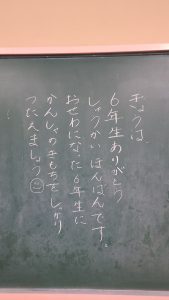 きょうは、
6年生ありがとう
しゅうかいほんばんです。
おせわになった6年生に
かんしゃのきもちをしっかり
つたえましょう